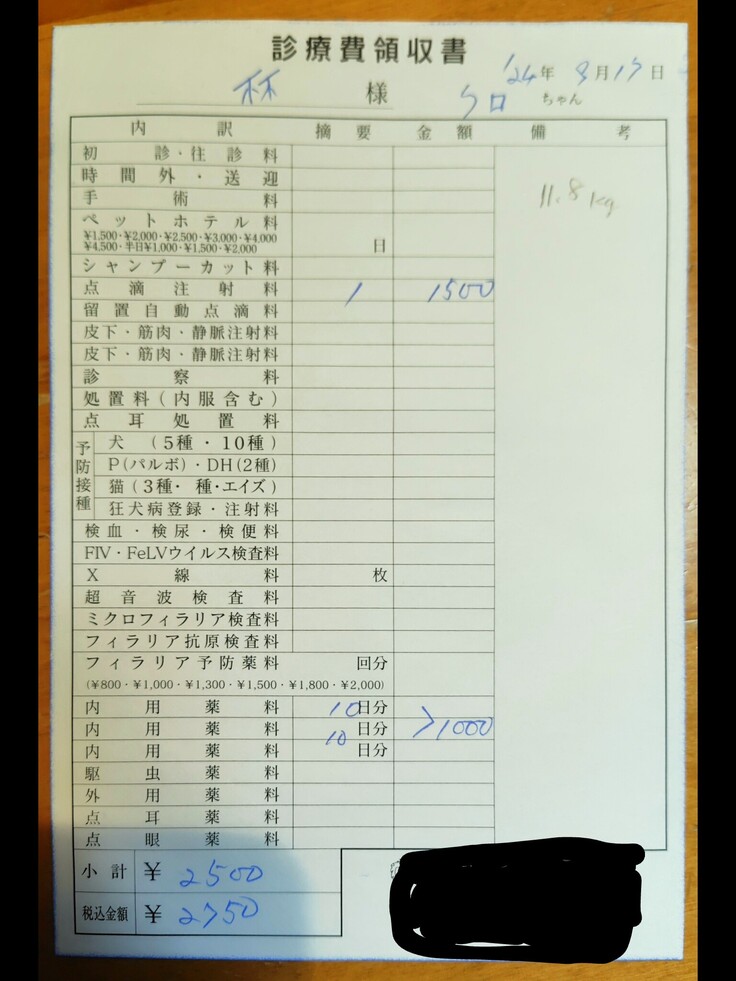 診療費領収書
'24年 8月17日
林 様 クロ ちゃん
内訳 摘要 金額 備考
初診・往診料
11.8kg
時間外・送迎
手術料
ペットホテル料
¥1,500・¥2,000・¥2,500・¥3,000・¥4,000
¥4,500・半日¥1,000・¥1,500・¥2,000 日
シャンプーカット料
点滴注射料 1 1500
留置自動点滴料
皮下・筋肉・静脈注射料
皮下・筋肉・静脈注射料
診察料
処置料(内服含む)
点耳処置料
予防接種
犬 (5種・10種)
P(パルボ)・DH(2種)
猫(3種・ 種・エイズ)
狂犬病登録・注射料
検血・検尿・検便料
FIV・FeLVウイルス検査料
X線料 枚
超音波検査料
ミクロフィラリア検査料
フィラリア抗原検査料
フィラリア予防薬料 回分
(¥800・¥1,000・¥1,300・¥1,500・¥1,800・¥2,000)
内用薬料 10日分
内用薬料 日分 >1000
内用薬料 10日分
駆虫薬料
外用薬料
点耳薬料
点眼薬料
小計 ¥ 2500
税込金額 ¥ 2750